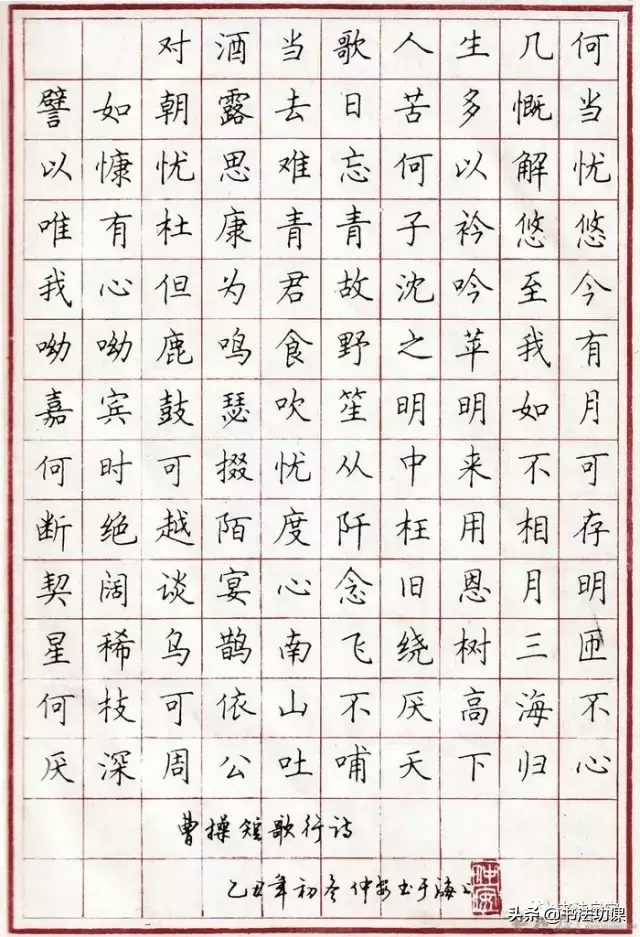 对酒当歌人生几何
譬如朝露去日苦多慨当
以慷忧思难忘何以解忧
唯有杜康青青子衿悠悠
我心但为君故沈吟至今
呦呦鹿鸣食野之苹我有
嘉宾鼓瑟吹笙明明如月
何时可掇忧从中来不可
断绝越陌度阡枉用相存
契阔谈宴心念旧恩月明
星稀乌鹊南飞绕树三匝
何枝可依山不厌高海不
厌深周公吐哺天下归心
曹操短歌行诗
乙丑年初冬 仲安书于海上
头条 @书法功课